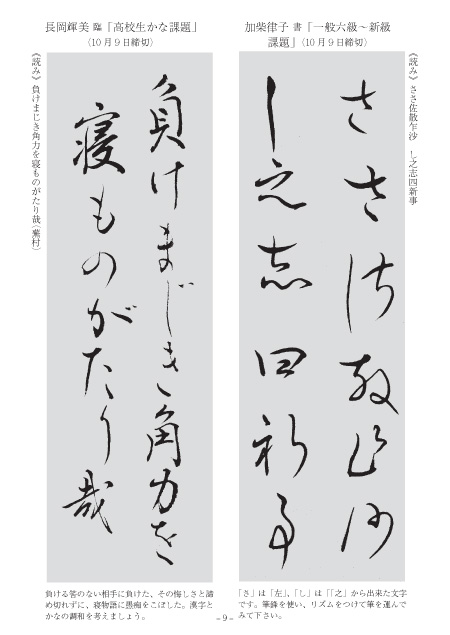 加柴律子 書「一般六級～新級
課題」(10月9日締切)
《読み》ささ佐散乍沙　し之志四新事
ささ佐散乍沙
し之志四新事
「さ」は「左」、「し」は「「之」から出来た文字
です。筆鋒を使い、リズムをつけて筆を運んで
みて下さい。
長岡輝美 臨「高校生かな課題」
(10月9日締切)
負けまじき角力を
寝ものがたり哉
《読み》負けまじき角力を寝ものがたり哉(蕪村)
負ける筈のない相手に負けた、その悔しさと諦
め切れずに、寝物語に愚痴をこぼした。漢字と
かなの調和を考えましょう。
- 9 -